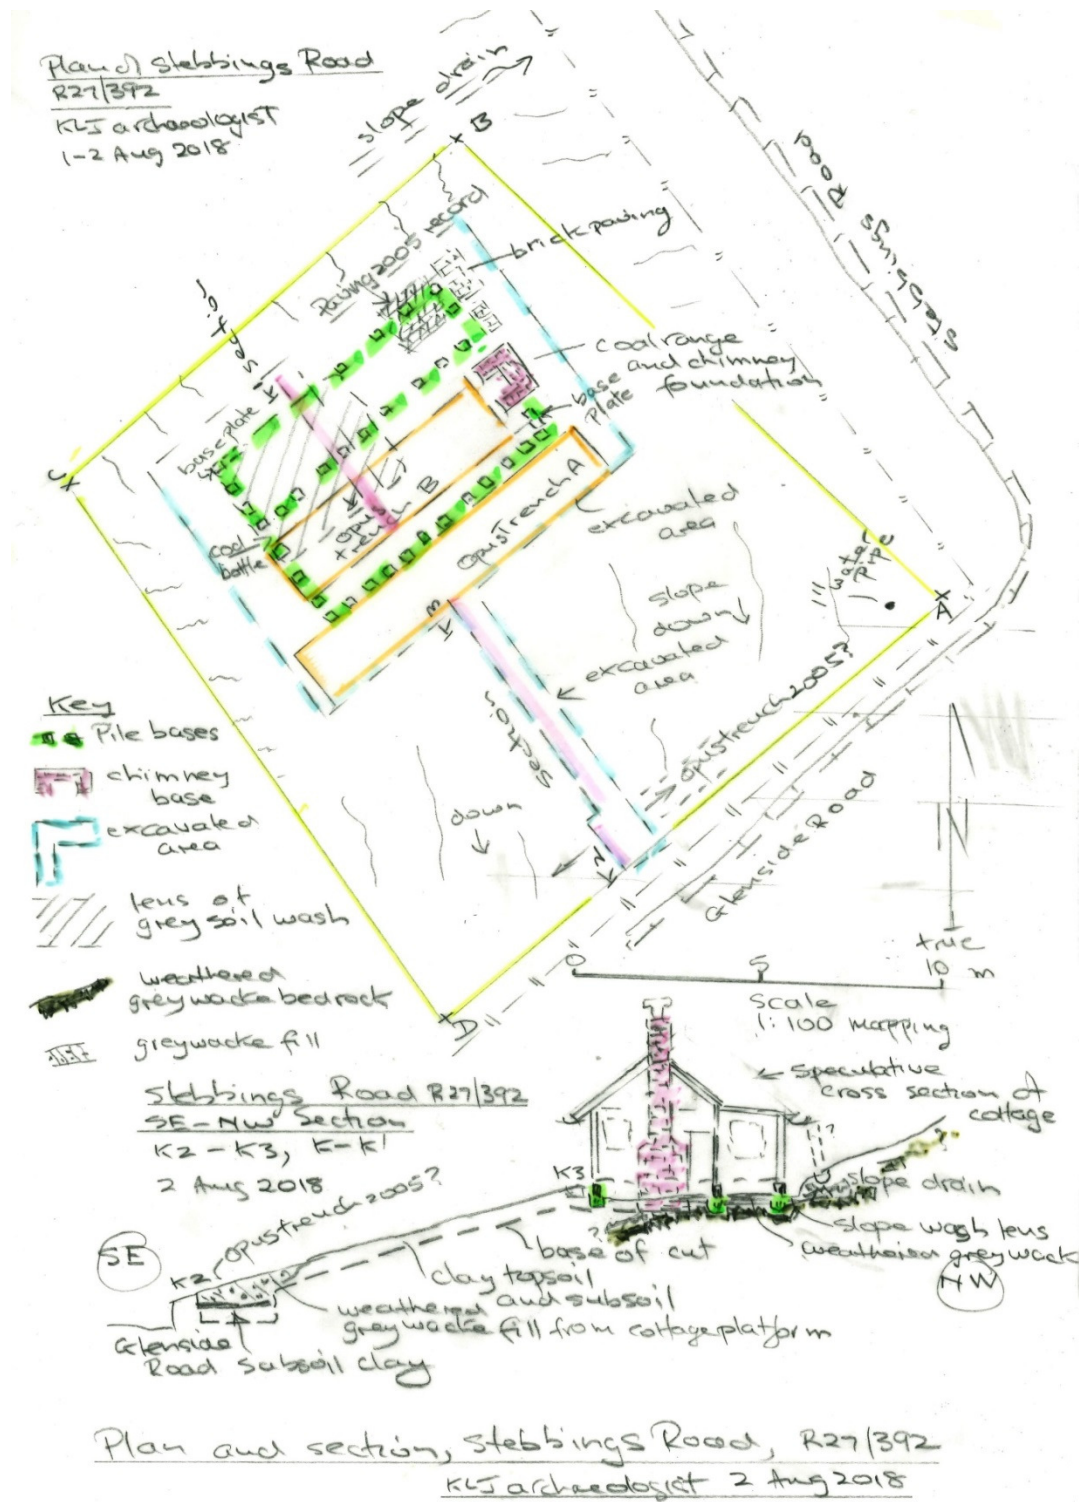 Plan of Stebbings Road
R27/392
KLJ archaeologist
1-2 Aug 2018
slope drain
B
Stebbings Road
Paving 2005 record
brick paving
coal range
and chimney
foundation
base
plate
baseplate
C
K1
K
coal
bottle
Opus
trench B
Opus trench A
excavated
area
water
pipe
A
slope
down
excavated
area
K3
section
Opus trench 2005?
down
K2
Glenside Road
D
N
true
0 5 10 m
Scale
1:100 mapping
Key
Pile bases
chimney
base
excavated
area
lens of
grey soil wash
weathered
greywacke bedrock
greywacke fill
Stebbings Road R27/392
SE-NW Section
K2-K3, K-K1
2 Aug 2018
speculative
cross section of
cottage
K3
?
?
slope drain
slope wash lens
SE
NW
Opus trench 2005?
K2
?
base of cut
clay topsoil
and subsoil
weathered
greywacke fill from cottage platform
Glenside
Road subsoil clay
Plan and section, Stebbings Road, R27/392
KLJ archaeologist 2 Aug 2018